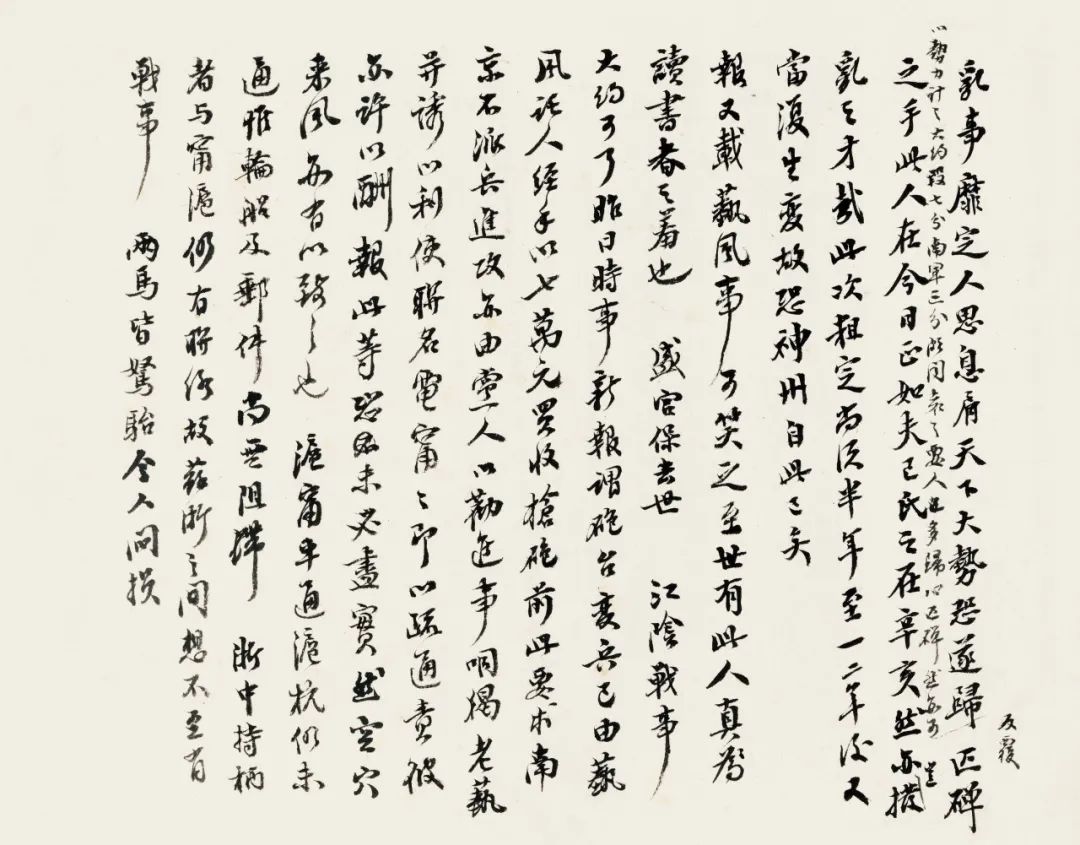 乱事靡定人思息肩天下大勢恐遂歸正碑
以勢力計之大約段七分南軍三分所同哀之要人進多歸心正碑
反覆
之手此人在今日正如夫己氏之在辛亥然亦撥
乱之才哉此次粗定尚須半年至一二年後又
當復生變故恐神州自此已矣
報又載藝風事可笑之至世有此人真為
讀書者之羞也 盛宮保去世 江陰戰事
大約可了昨日時事新報謂砲台變兵已由藝
風託人經手以七萬元買收槍砲前此要求南
京不派兵進攻亦由黨人以勸進事恫喝老藝
并誘以利使聯名電甯甯即以疏通責彼
亦許以酬報此等恐亦未必盡實然空穴
来風亦有以致之也 滬甯車通滬杭仍未
通惟輪船及郵件尚無阻滯 浙中持柄
者与甯滬仍有聯絡故蘇浙之間想不至有
戰事 兩馬皆駑駘令人悶損